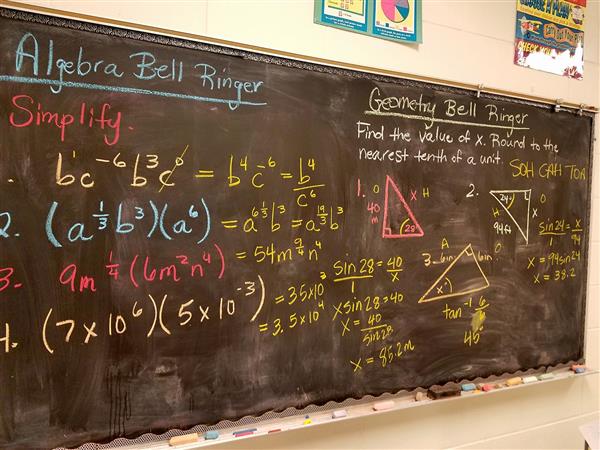 Algebra Bell Ringer
Simplify.
. bc⁻⁶ b³c⁰ = b⁴c⁻⁶ = b⁴/c⁶
2. (a^(1/3) b³)(a⁶) = a^(6 1/3) b³ = a^(19/3) b³
3. 9m^(1/4) (6m²n⁴) = 54m^(9/4) n⁴
4. (7 x 10⁶)(5 x 10⁻³) = 35x10³
= 3.5x10⁴
Geometry Bell Ringer
Find the value of x. Round to the
nearest tenth of a unit.
SOH CAH TOA
1. O
40 m
X H
28°
sin 28/1 = 40/x
x sin 28 = 40
x = 40/sin 28
x = 85.2 m
2.
24°
O
H
X
94 ft
sin 24/1 = x/94
x = 94 sin 24
x = 38.2
3.
A
6in
6in
O
x°
tan⁻¹ 6/6
45°